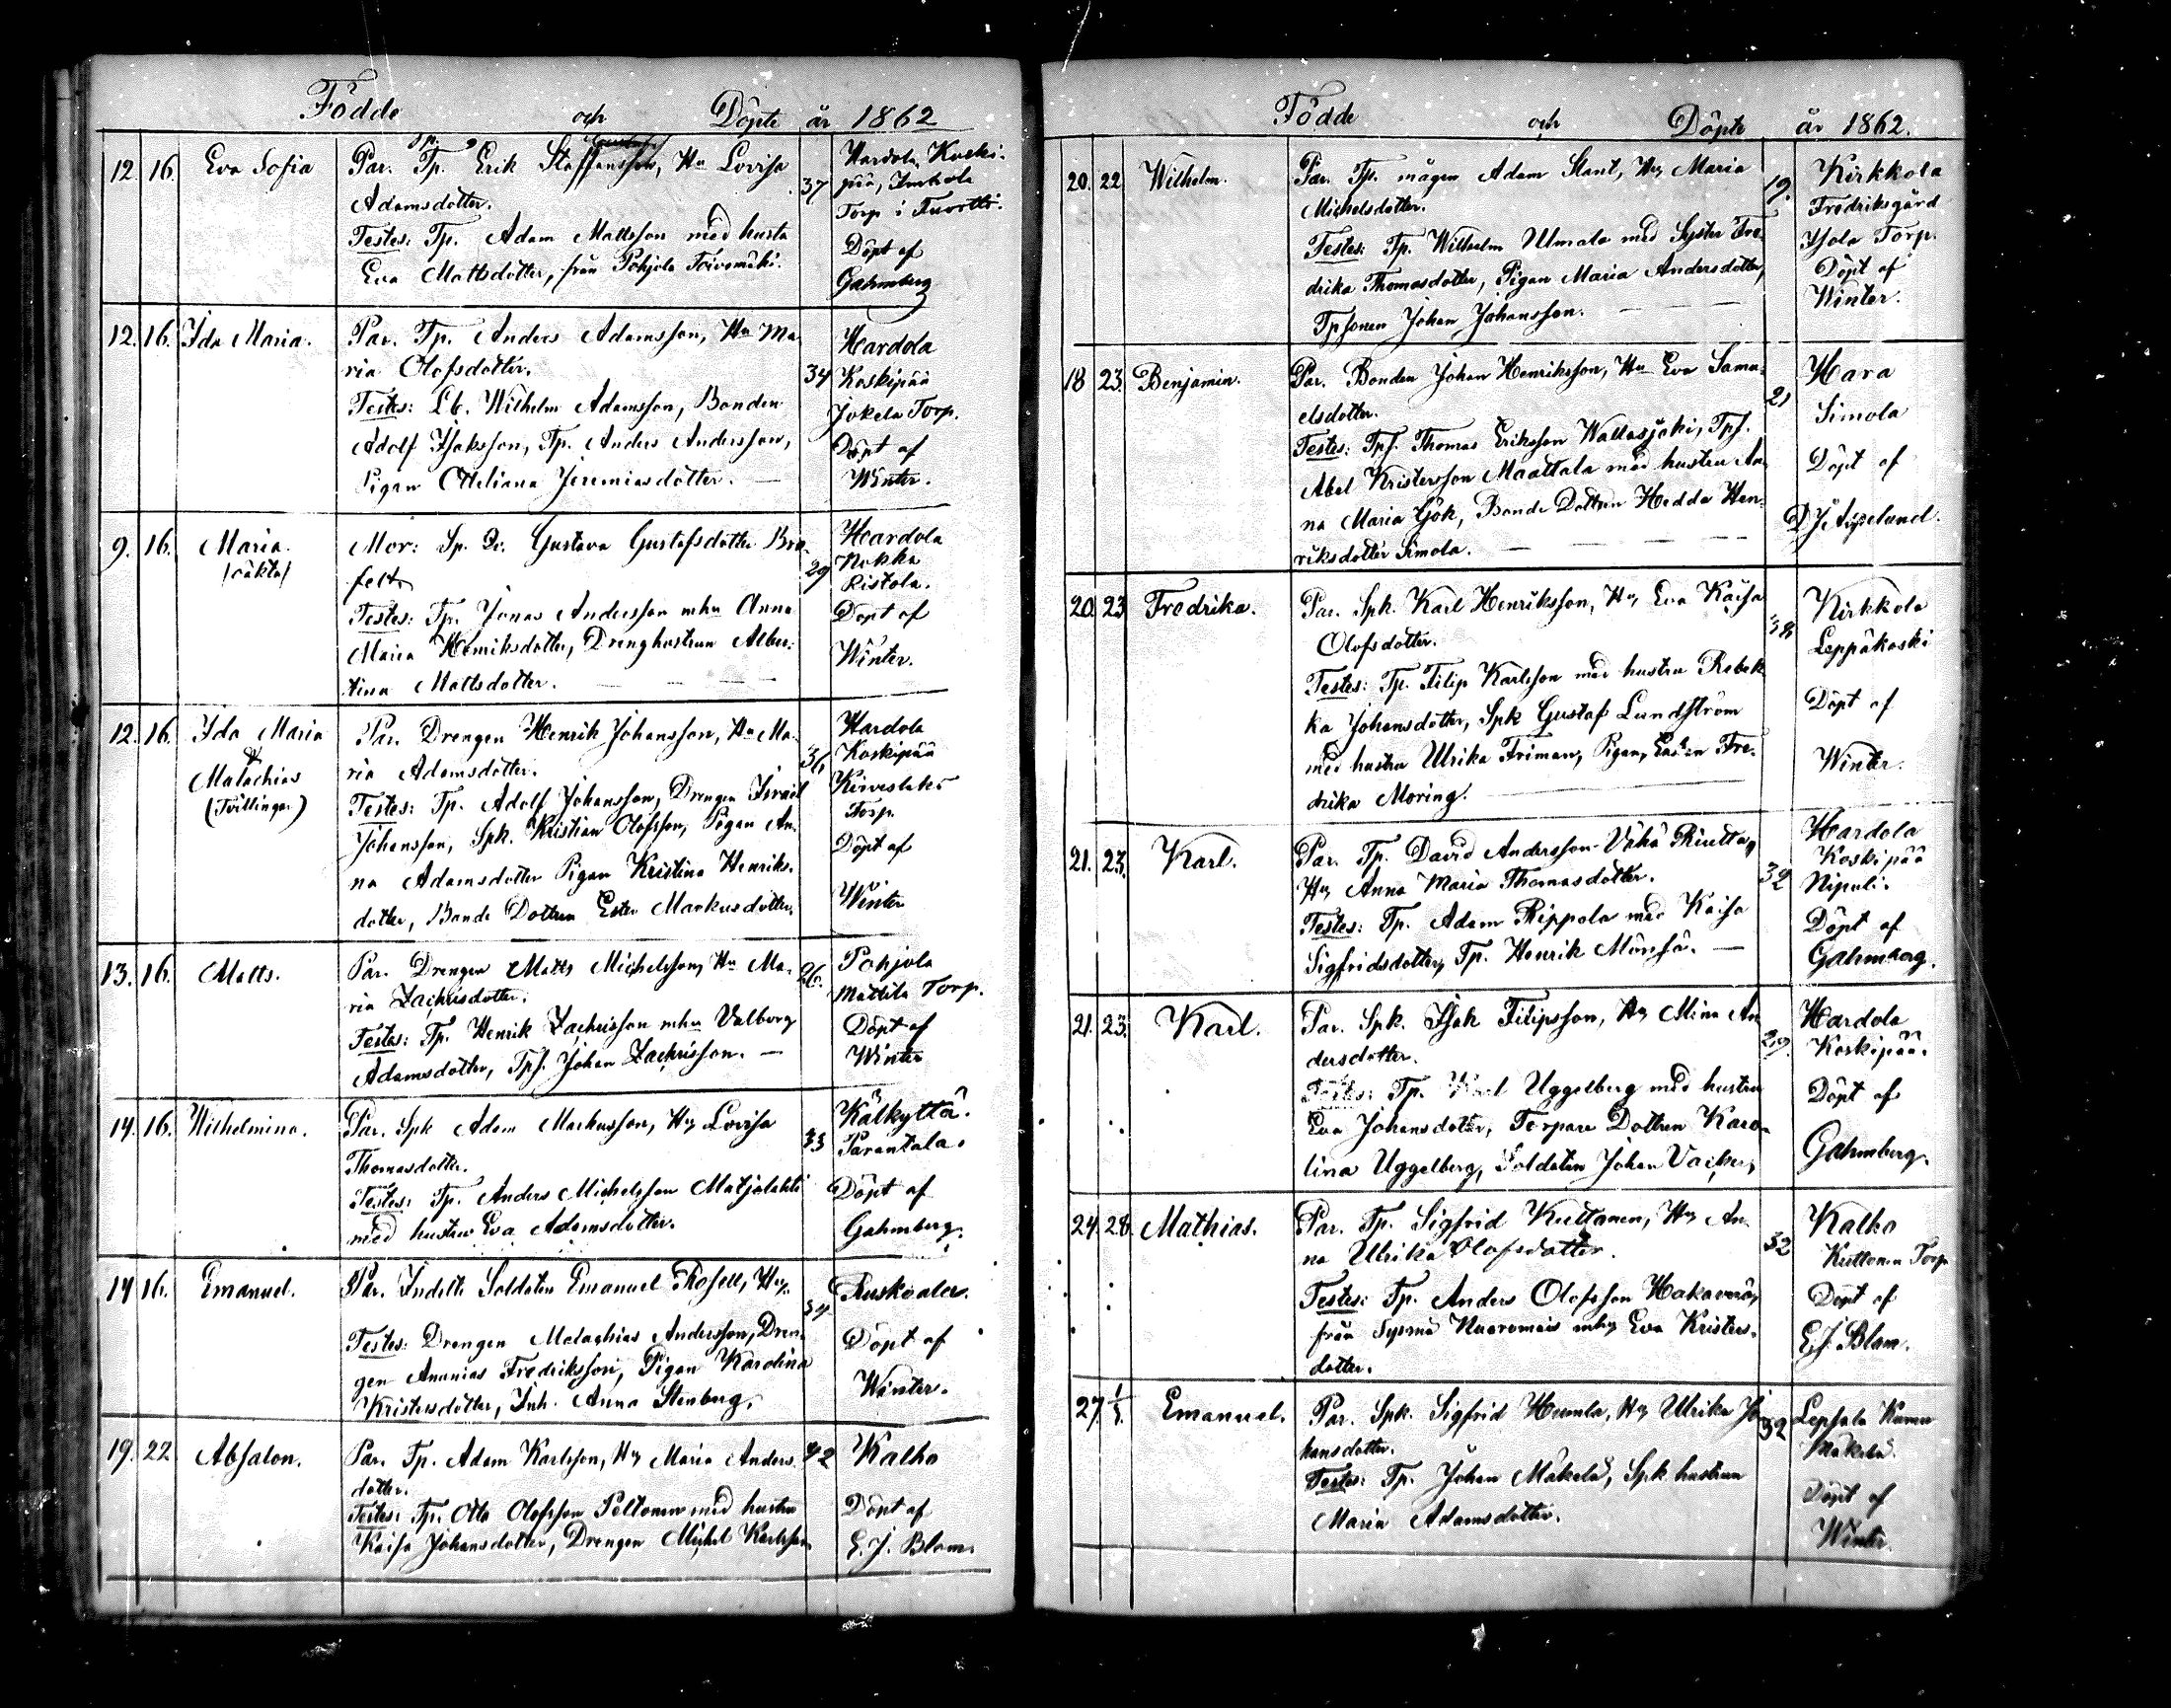 Födde och Döpte år 1862
12. 16. Eva Sofia Par. Tp. Erik Staffansson, Hu Lovisa 37 Hardola, Koski-
Adamsdotter. pää, Imhola
Testes: Tp. Adam Mattsson med husta Torp i
Eva Mattsdotter, från Pohjola Toivomäki. Döpt af
Gahmberg
12. 16. Ida Maria. Par. Tp. Anders Adamsson, Hu Ma Hardola
ria Olofsdotter. 34 Koskipää
Testes: Lb. Wilhelm Adamsson, Bonden Jokela Torp.
Adolf Isaksson, Tp. Anders Andersson, Döpt af
Pigan Otteliana Jeremiasdotter. — Winter.
9. 16. Maria. Mor: Sp. Gustava Gustafsdotter Bro- Hardola
/oäkta/ felt 29 Nokka
Ristola.
Testes: Tp. Jonas Andersson mhu Anna Döpt af
Maria Henriksdotter, Drenghustrun Alber- Winter.
tina Mattsdotter. — — —
12. 16. Ida Maria Par. Drengen Henrik Johansson, Hu Ma- Hardola
& ria Adamsdotter. 36 Koskipää
Malachias Testes: Tp. Adolf Johansson, Drengen Israel Kirveslaks
(Tvillingar) Johansson, Spk. Kristian Olofsson, Pigan An- Torp.
na Adamsdotter Pigan Kristina Henriks- Döpt af
dotter, Bonde Dottren Ester Markusdotter. Winter
13. 16. Matts. Par. Drengen Matts Michelsson, Hu Ma- 26. Pohjola
ria Zachrisdotter. Mattila Torp.
Testes: Tp. Henrik Zachrisson mhu Valborg Döpt af
Adamsdotter, Tps. Johan Zachrisson. — Winter
14. 16. Wilhelmina. Par. Spk Adam Markusson, Hu Lovisa 33 Kälkyttä.
Thomasdotter. Parantala.
Testes: Tp. Anders Michelsson Matjolahti Döpt af
med hustru Eva Adamsdotter. Gahmberg.
14 16. Emanuel. Par. Indelte Soldaten Emanuel Rosell, Hu Ruskoala.
Testes: Drengen Malachias Andersson, Dren- Döpt af
gen Ananias Fredriksson, Pigan Karolina Winter.
Kristersdotter, Inh. Anna Stenberg.
19. 22 Absalon. Par. Tp. Adam Karlsson, Hu Maria Anders- 42 Kalho
dotter.
Testes: Tp. Otto Olofsson Peltonen med hustru Döpt af
Kaisa Johansdotter, Drengen Michel Karlsson E. J. Blom.
Födde och Döpte år 1862.
20. 22 Wilhelm. Par. Tp. mågen Adam Stant, Hu Maria 19. Kirkkola
Michelsdotter. Fredriksgård
Testes: Tp. Wilhelm Ulmala med Syster Fre- Isola Torp.
drika Thomasdotter, Pigan Maria Andersdotter, Döpt af
Tpsonen Johan Johansson. — — Winter.
18 23. Benjamin. Par. Bonden Johan Henriksson, Hu Eva Samu- 21 Hara
elsdotter. Simola
Testes: Tps. Thomas Eriksson Wallasjoki, Tps.
Abel Kristersson Maattala med hustru An- Döpt af
na Maria Gök, Bonde Dottren Hedda Hen-
riksdotter Simola. — — — D J Aspelund.
20. 23 Fredrika. Par. Spk. Karl Henriksson, Hu Eva Kaisa 38 Kirkkola
Olofsdotter. Leppäkoski
Testes: Tp. Filip Karlsson med hustru Rebek-
ka Johansdotter, Spk Gustaf Lundström Döpt af
med hustru Ulrika Friman, Pigan, Enkan Fre- Winter.
drika Moring. —
21. 23. Karl. Par. Tp. David Andersson Vähä Riutta, 32 Hardola
Hu Anna Maria Thomasdotter. Koskipää
Nipuli.
Testes: Tp. Adam Rippola med Kaisa Döpt af
Sigfridsdotter, Tp. Henrik Mörsä. — Gahmberg.
21. 23. Karl. Par. Spk. Isak Filipsson, Hu Mina An 29. Hardola
dersdotter. Koskipää.
Testes: Tp. Karl Uggelberg med hustru Döpt af
Eva Johansdotter, Torpare Dottren Karo-
lina Uggelberg, Soldaten Johan Vacker, Gahmberg.
24. 28. Mathias. Par. Tp. Sigfrid Kuttanen, Hu An- 32 Kalho
na Ulrika Olofsdotter. Kuttanen Torp
Testes: Tp. Anders Olofsson Hakavorä, Döpt af
från Sysmä mhu Eva Kristers- E J. Blom.
dotter.
27. 1/5. Emanuel. Par. Spk. Sigfrid Humla, Hu Ulrika Jo 32 Lepsala
hansdotter. Mäkelä.
Testes: Tp. Johan Mäkelä, Spk hustrun Döpt af
Maria Adamsdotter. Winter.